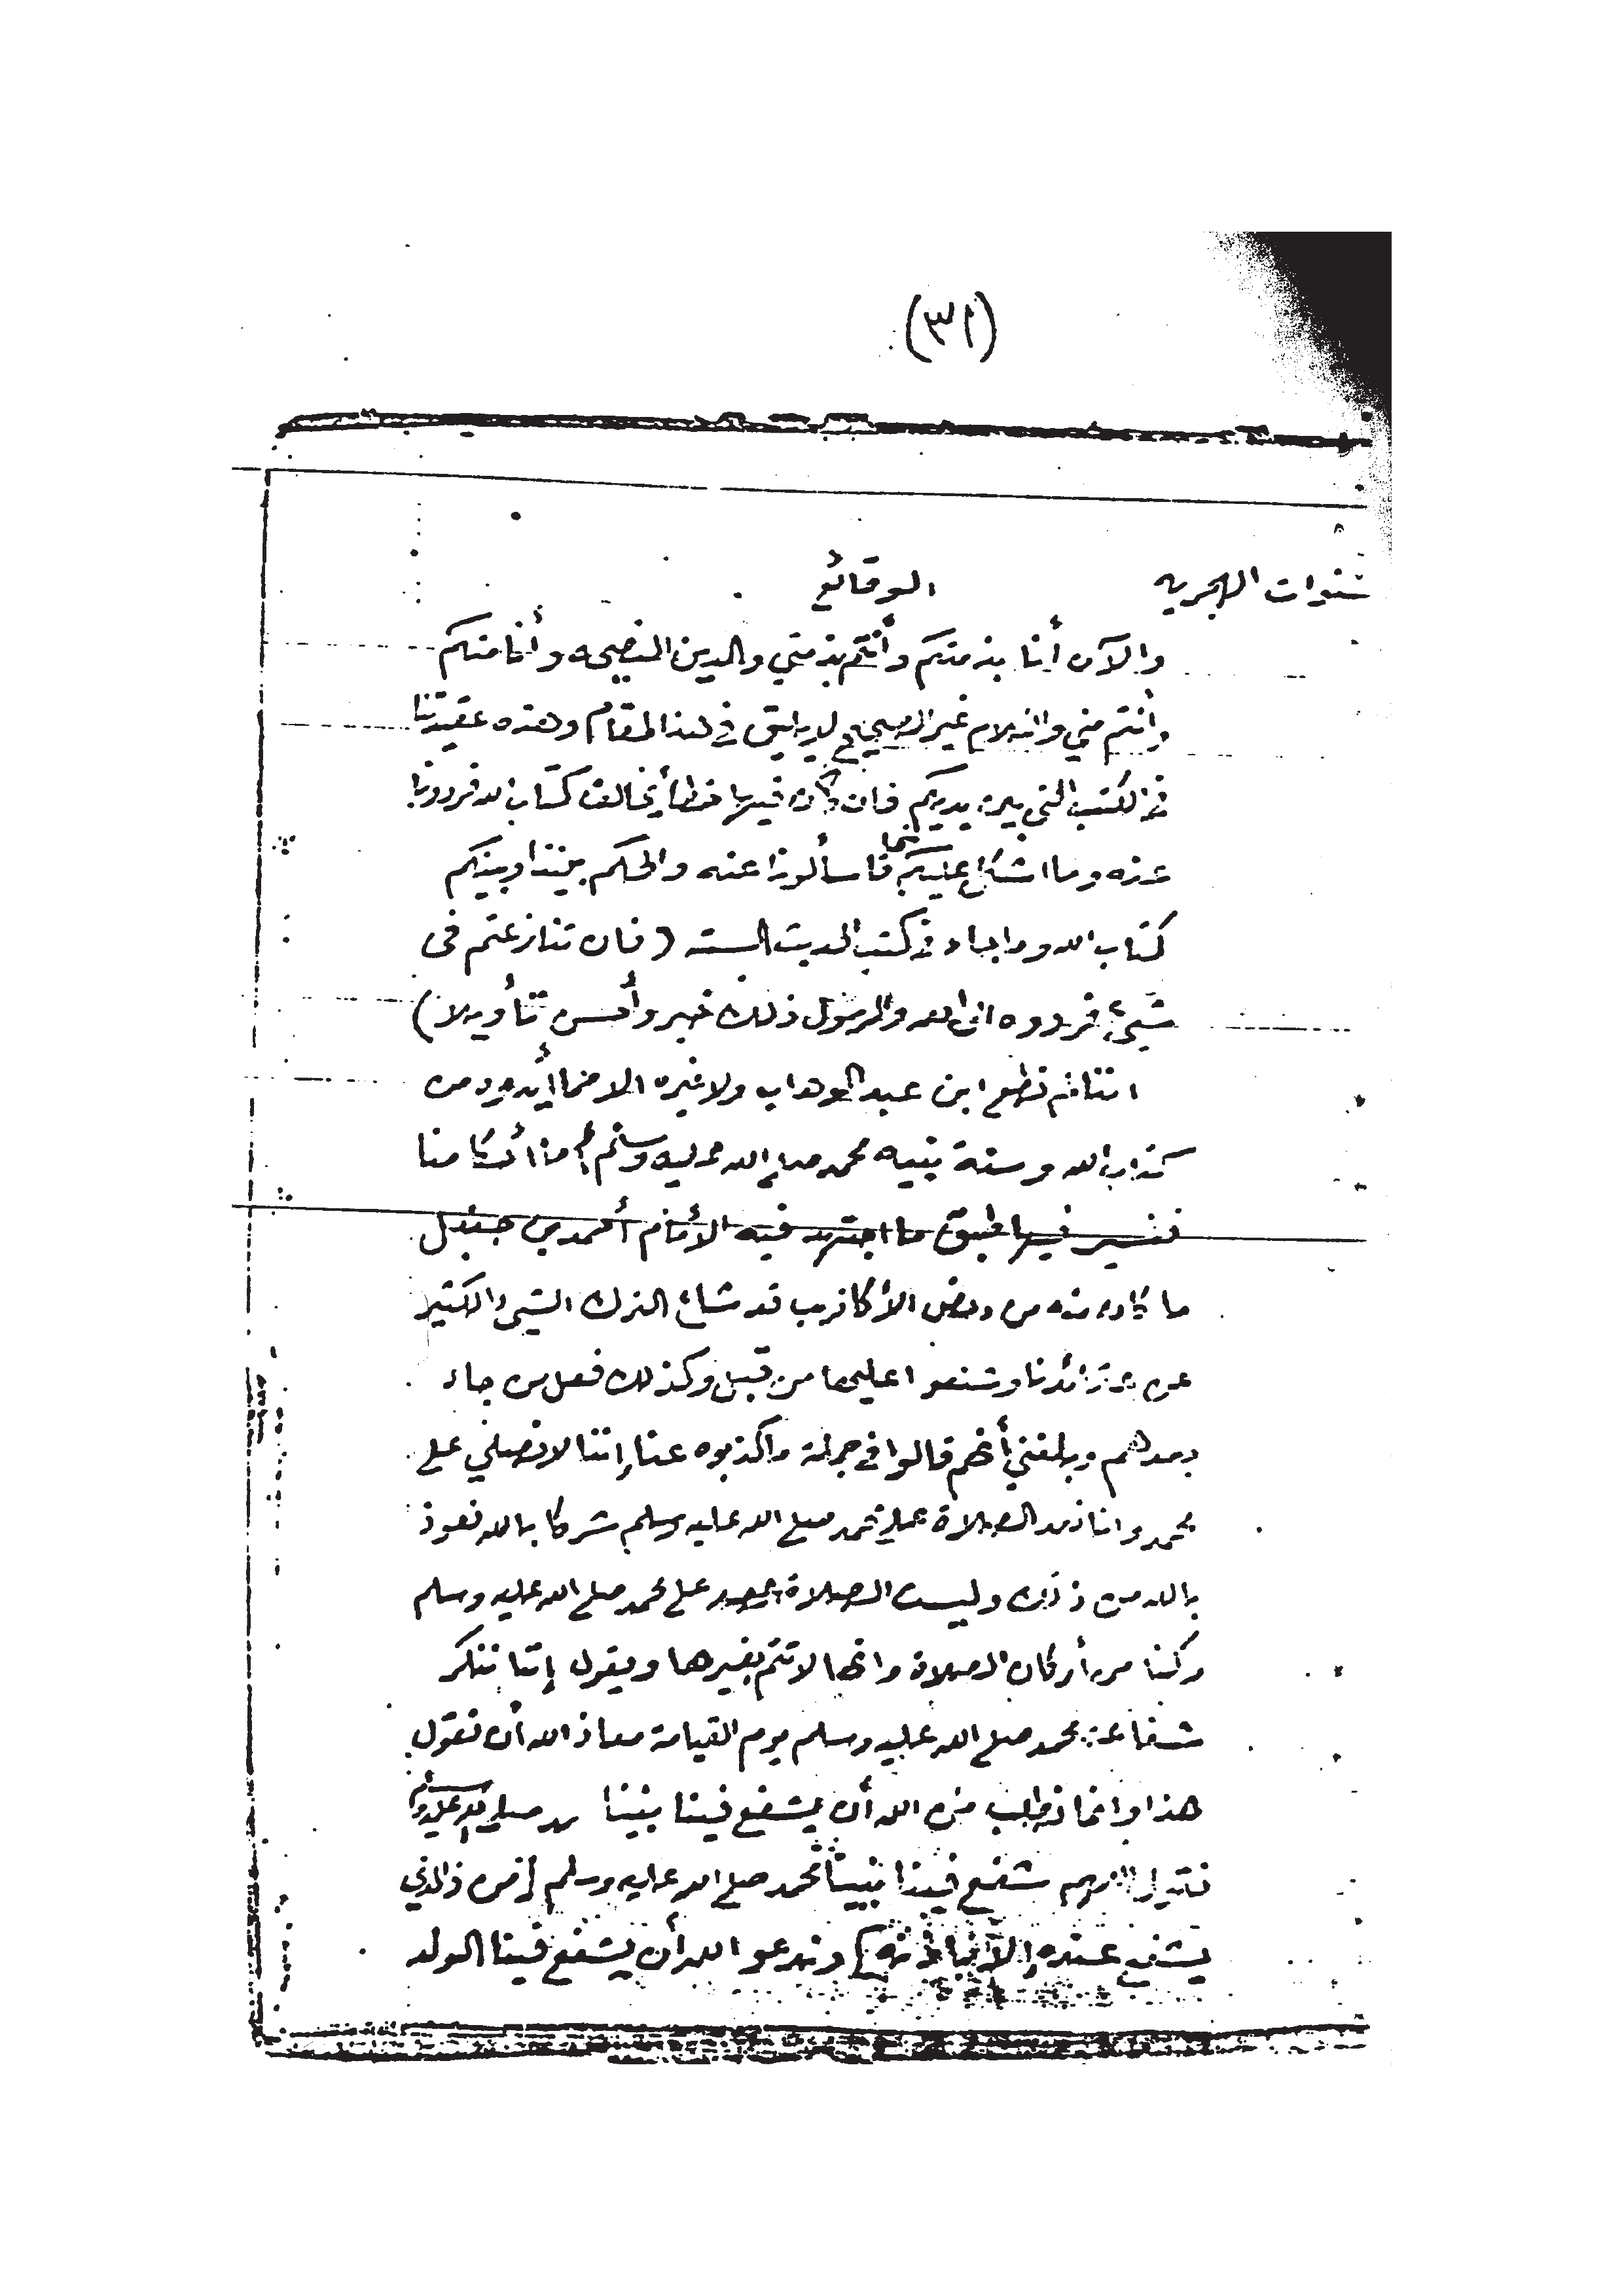 (٣١)
سنوات الهجريه الوقائع
والآن أنا بذمتكم وأنتم بذمتي والدين النصيحه وأنا منكم
وأنتم مني والكلام غير الصحيح لا يليق في هذا المقام وهذه عقيدتنا
في الكتب التي بين يديكم فان كان فيها خطأ يخالف كتاب الله فردونا
عنه وما اشكل عليكم فيها فاسألونا عنه والحكم بيننا وبينكم
كتاب الله وما جاء في كتب الحديث السته (فان تنازعتم في
شيء فردوه الى الله والرسول ذلك خير وأحسن تأويلا)
اننا لم نطع ابن عبد الوهاب ولا غيره الا فيما أيدوه من
كتاب الله وسنة نبيه محمد صلى الله عليه وسلم أما أحكامنا
فنسير فيها طبق ما اجتهد فيه الأمام أحمد بن حنبل
ما كان منه من بعض الأكاذيب قد شاع الترك الشيء الكثير
عن عقائدنا وشنعوا عليها من قبل وكذلك فعل من جاء
بعدهم وبلغني أنهم قالوا في جملة ما كذبوه عنا إننا لا نصلي على
محمد واننا نعد الصلاة على محمد صلى الله عليه وسلم شركا بالله نعوذ
بالله من ذلك وليست الصلاة على محمد صلى الله عليه وسلم
ركنا من أركان الصلاة وانها لا تتم بغيرها ويقول إننا ننكر
شفاعة محمد صلى الله عليه وسلم يوم القيامة معاذ الله أن نقول
هذا وانما نطلب من الله أن يشفع فينا نبينا صلى الله عليه وسلم
شفع فينا نبينا محمد صلى الله عليه وسلم (من ذالذي
يشفع عنده إلا بإذنه) وندعو الله أن يشفع فينا الولد